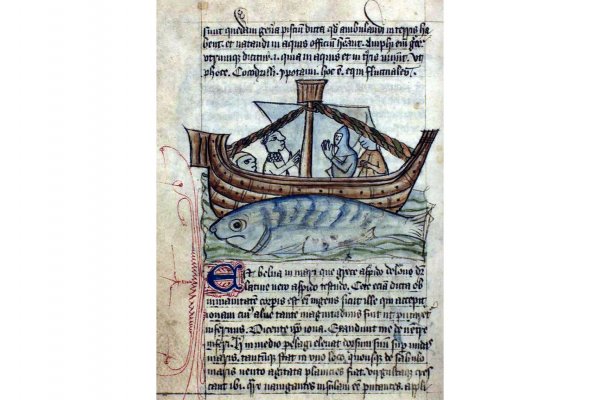 sunt quedam gena pisciū dicta qd ambulandi in terris ha
bent. et natandi in aquis officiū heant. Amphi em gre
utrumque dicitur .i. quia in aquis et in tris vivūt. vt
phoce. Cocodrilli. ypotami. hoc ē equi fluctuales.
Est belua in mari que grece aspido delone dr
latine vero aspido testudo. Cete eciam dicta ob
inmanitatem corpis est em ingens sicut ille qui excepit
ionam cui alvus tante magnitudinis fuit ut putaret
infernus. Dicente ipo iona. Exaudivit me de ventre
inferi. in medio pelagi elevat dorsum suum sup undas
maris. tantumque stat in uno loco, quousque de sabulo
maris vento agitata planicies fiat. virgultaque cres
cant ibi. navigantes insulam eē putantes. appli